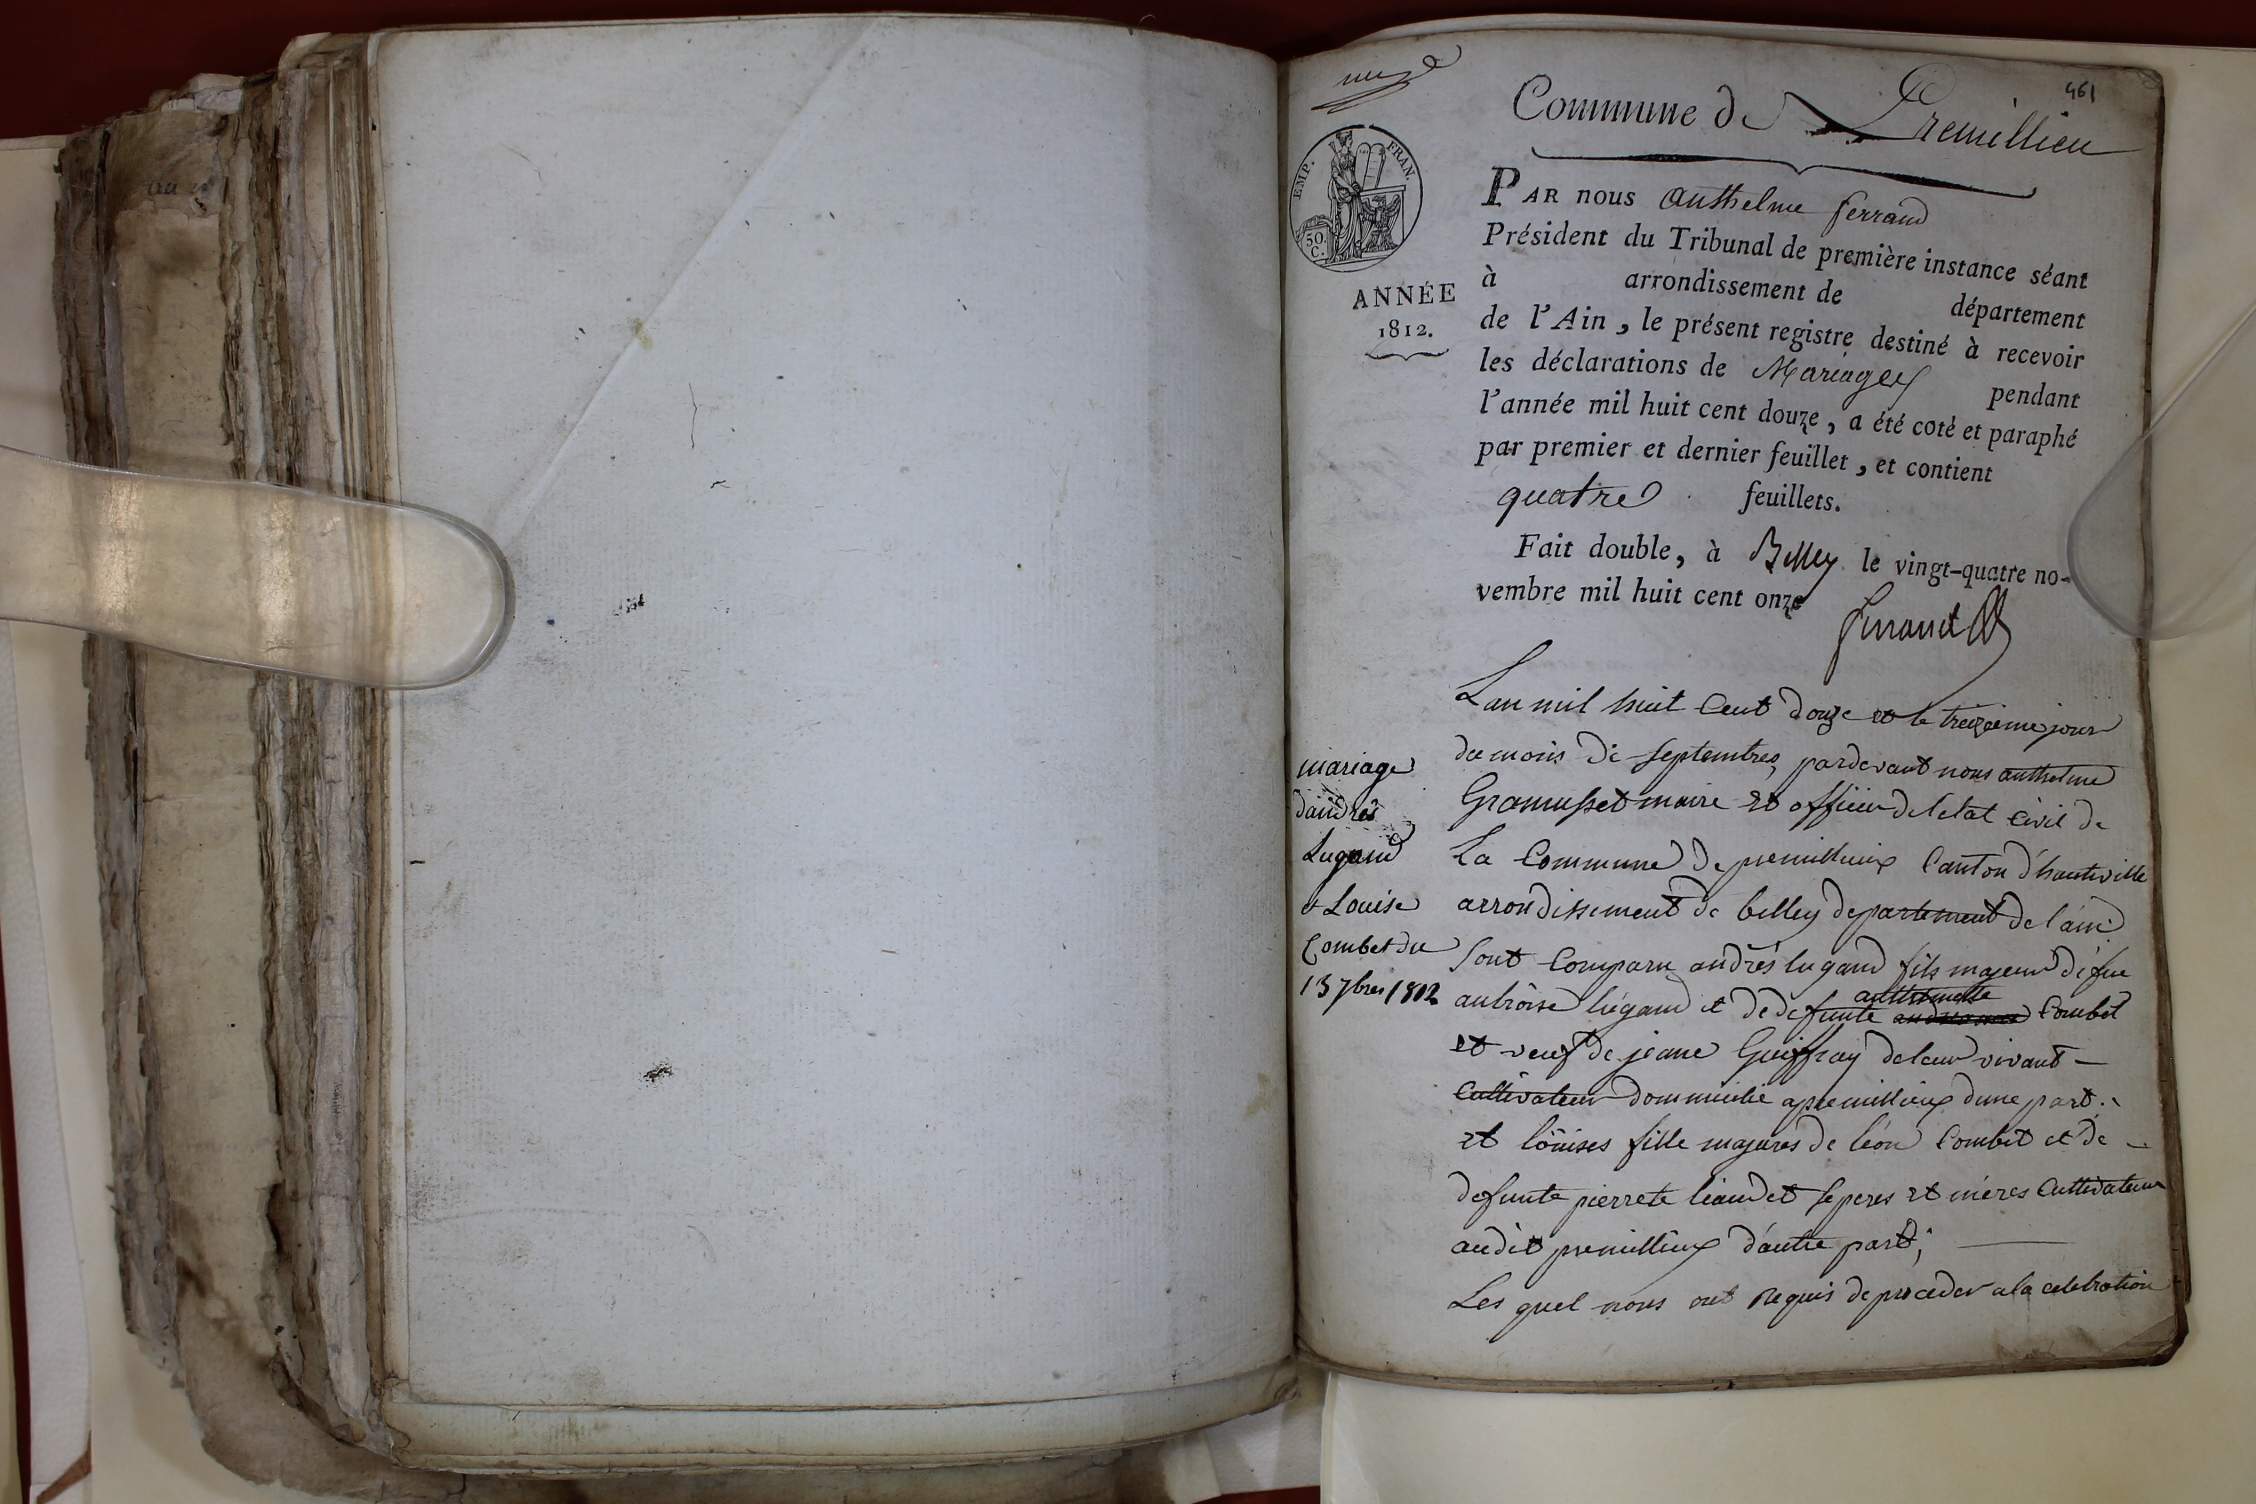 461
Commune de Premillieu
EMP. FRAN.
50 C.
ANNÉE
1812.
PAR nous Anthelme ferrand
Président du Tribunal de première instance séant
à arrondissement de département
de l'Ain, le présent registre destiné à recevoir
les déclarations de Mariages pendant
l'année mil huit cent douze, a été coté et paraphé
par premier et dernier feuillet, et contient
quatre feuillets.
Fait double, à Belley le vingt-quatre no-
vembre mil huit cent onze
ferrand
mariage
dandré
Lugand
& Louise
Combet du
13 7bres 1812
Lan mil huit Cent douze et le treizieme jour
du mois de septembres, pardevant nous anthelme
Gramusset maire et officier de letat Civil de
La Commune de premillieux Canton d'hauteville
arrondissement de belley departement de l'ain
sont Comparu andrés lugand fils majeur de feu
anbroise lugand et de defunte anthelmette Combet
et veuf de jeane Guiffray de leur vivant –
Cultivateur dommicilié apremillieux dune part.
et loüises fille majeures de léon Combet et de –
defunte pierrete liaudet se peres et meres Cultivateur
audit premillieux d'autre part;
Les quel nous ont Requis de proceder a la celebration